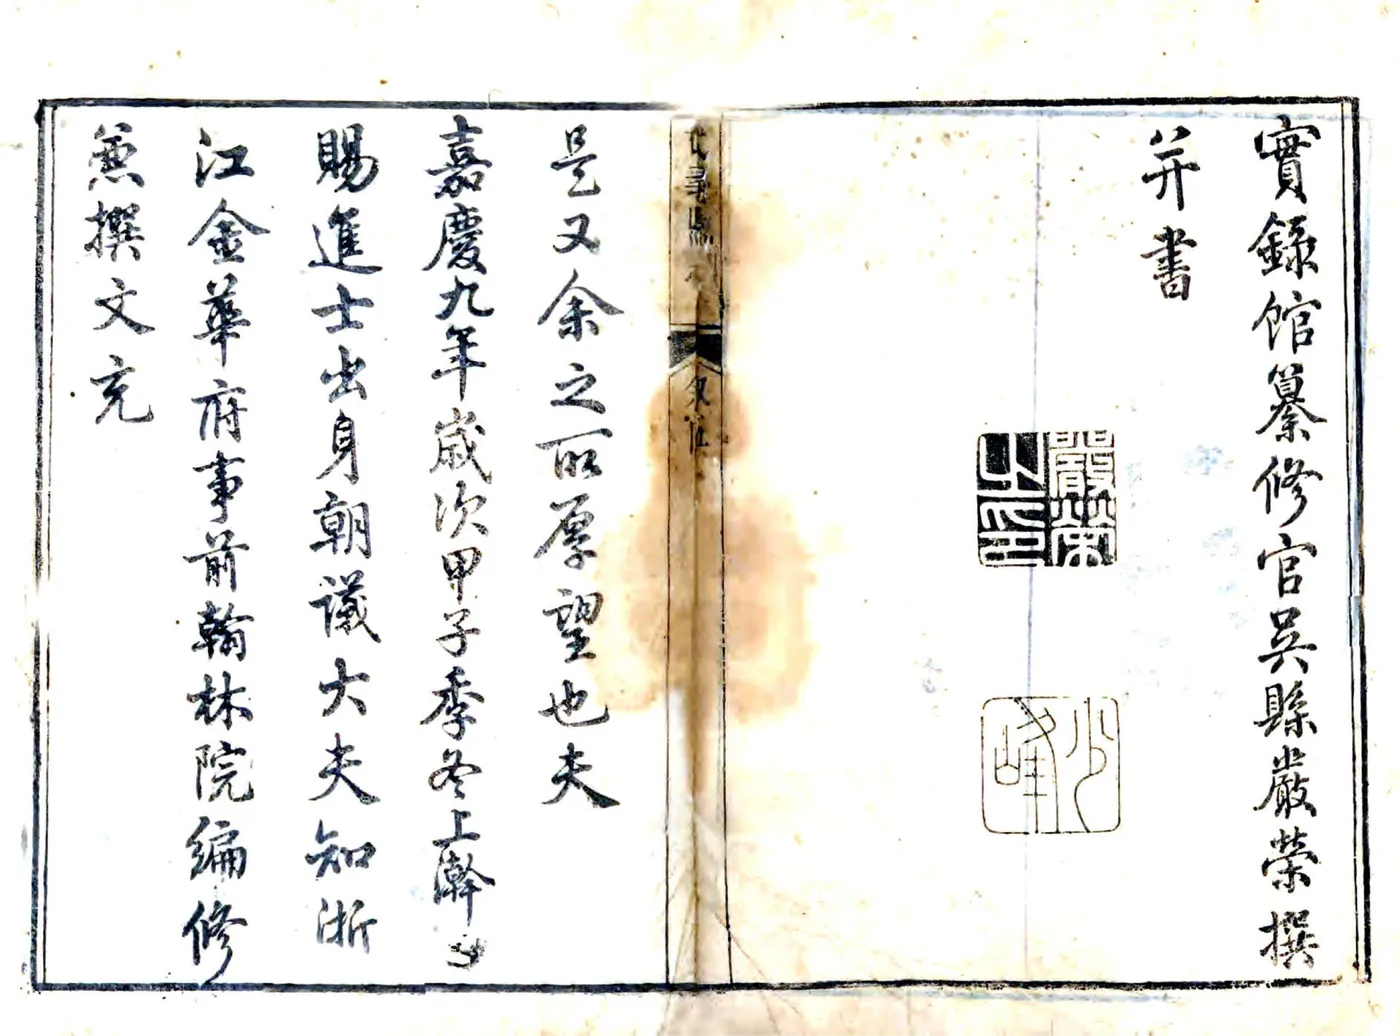 是又余之所厚望也夫
嘉慶九年歲次甲子季冬上澣
賜進士出身朝議大夫知浙
江金華府事前翰林院編修
兼撰文充
實錄館纂修官吳縣嚴榮撰
并書
嚴榮之印
少峰